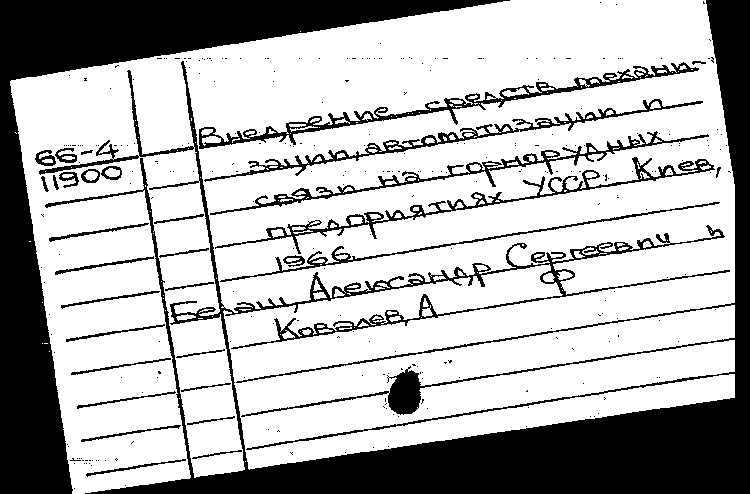 66-4
11900
Внедрение средств механи-
зации, автоматизации и
связи на горнорудных
предприятиях УССР. Киев,
1966.
Белаш, Александр Сергеевич и
Ковалев, А Ф